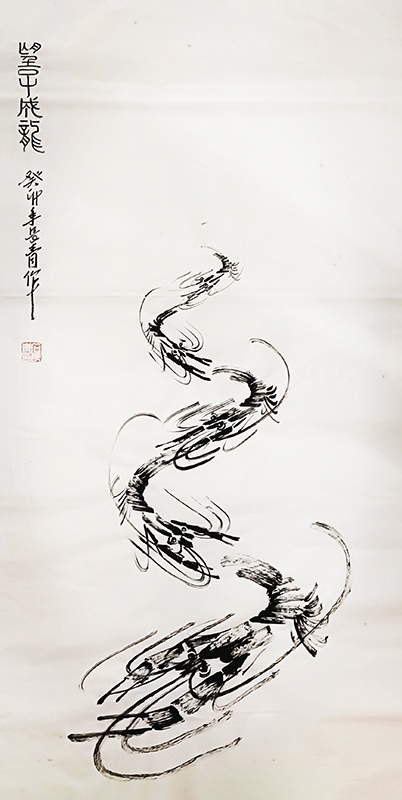 望子成龍
癸卯年吴青作